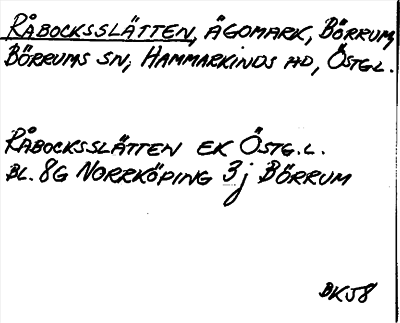 RÅBOCKSSLÄTTEN, ÄGOMARK, BÖRRUM,
BÖRRUMS SN, HAMMARKINDS HD, ÖSTGL.
RÅBOCKSSLÄTTEN EK ÖSTG.L.
BL. 8G NORRKÖPING 3j BÖRRUM
BKJ8